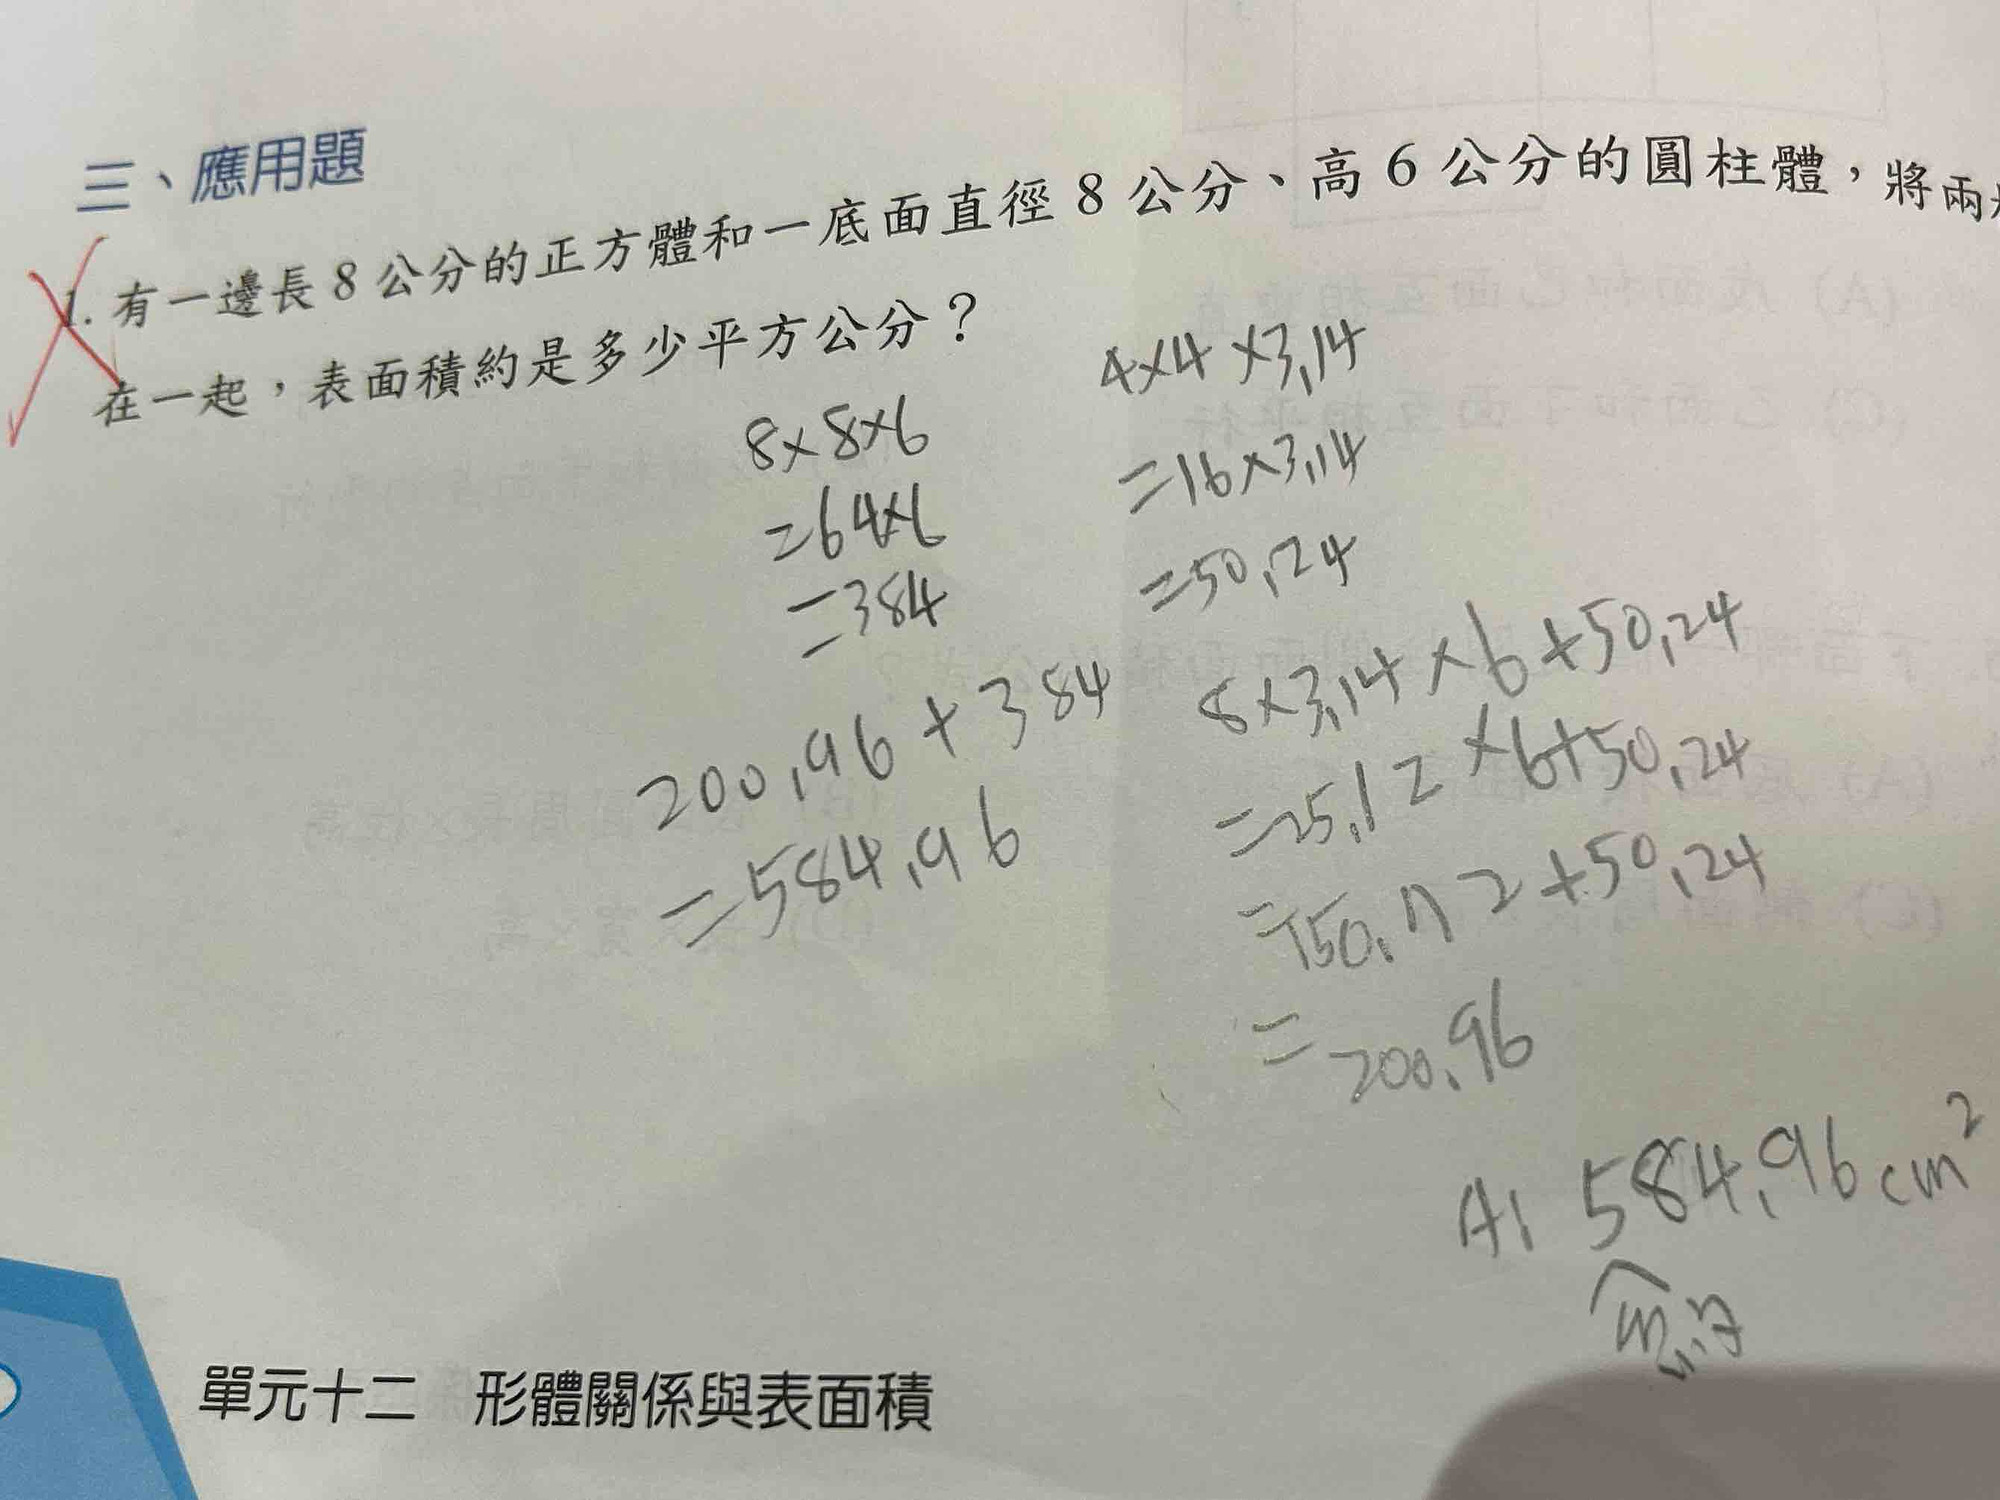 三、應用題
1. 有一邊長8公分的正方體和一底面直徑8公分、高6公分的圓柱體，將兩
在一起，表面積約是多少平方公分？
8×8×6
=64×6
=384
4×4×3.14
=16×3.14
=50.24
8×3.14×6+50.24
=25.12×6+50.24
=150.72+50.24
=200.96
200.96+384
=584.96
A: 584.96cm²
單元十二 形體關係與表面積